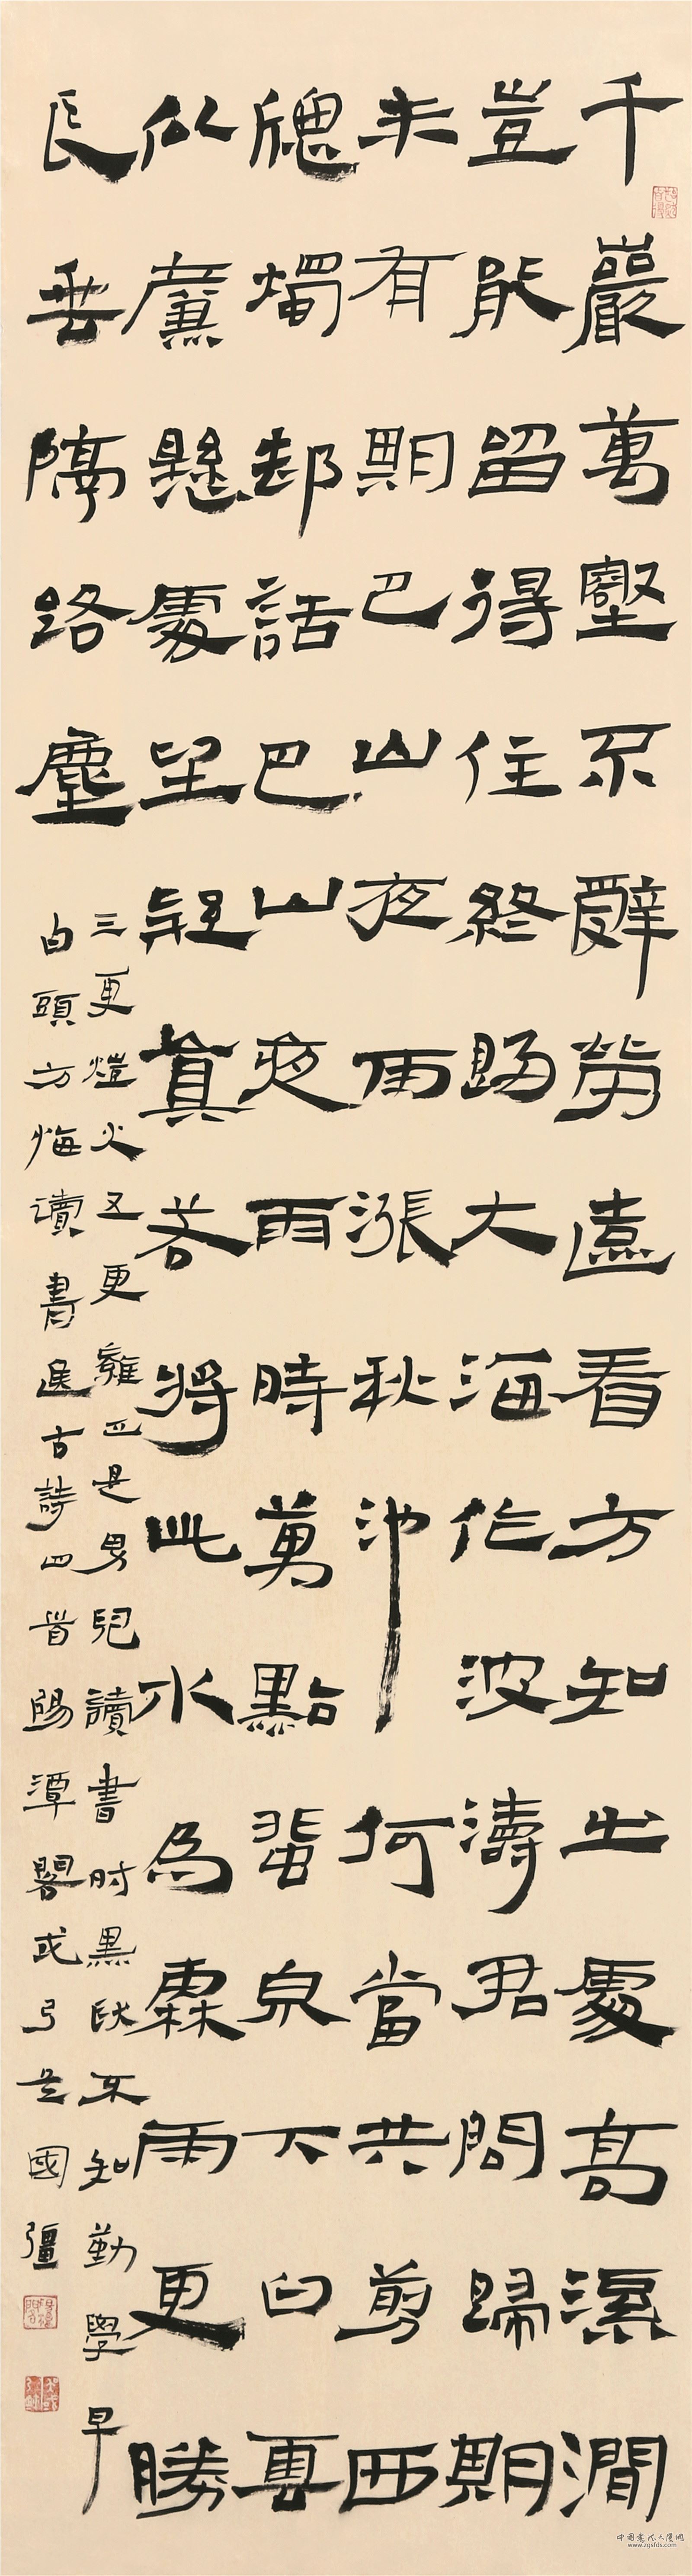 千巖萬壑不辭勞遠看方知出處高溪澗
豈能留得住終歸大海作波濤君問歸期
未有期巴山夜雨漲秋池何當共剪西
牕燭却話巴山夜雨時萬點蜚泉下白雲
似簾懸處望疑真若將此水為霖雨更勝
長垂隔路塵
三更燈火五更雞正是男兒讀書時黑髮不知勤學早
白頭方悔讀書遲古詩四首潭弓國彊
中國書法大厦網
www.zgsfds.com